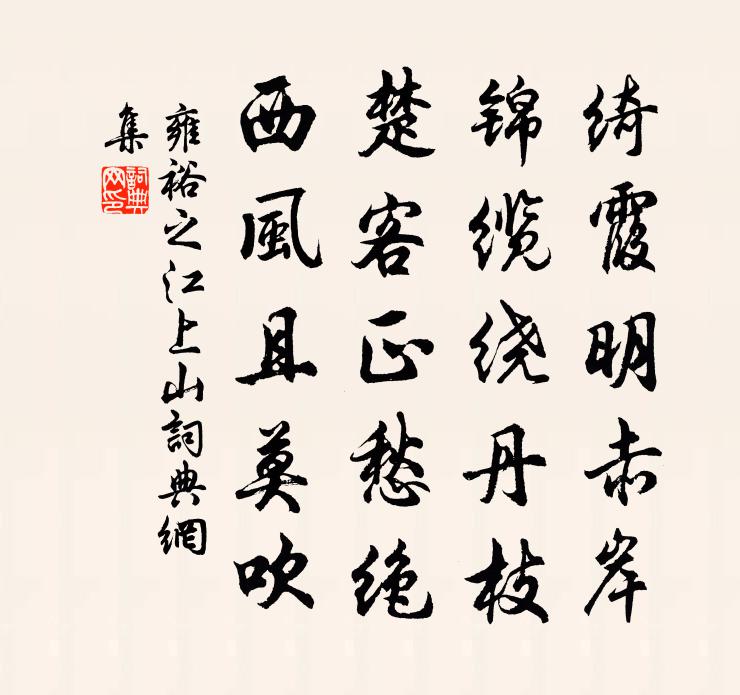 绮霞明赤岸
锦缆绕丹枝
楚客正愁绝
西風且莫吹
雍裕之江上山詞典網
集
詞典
网印